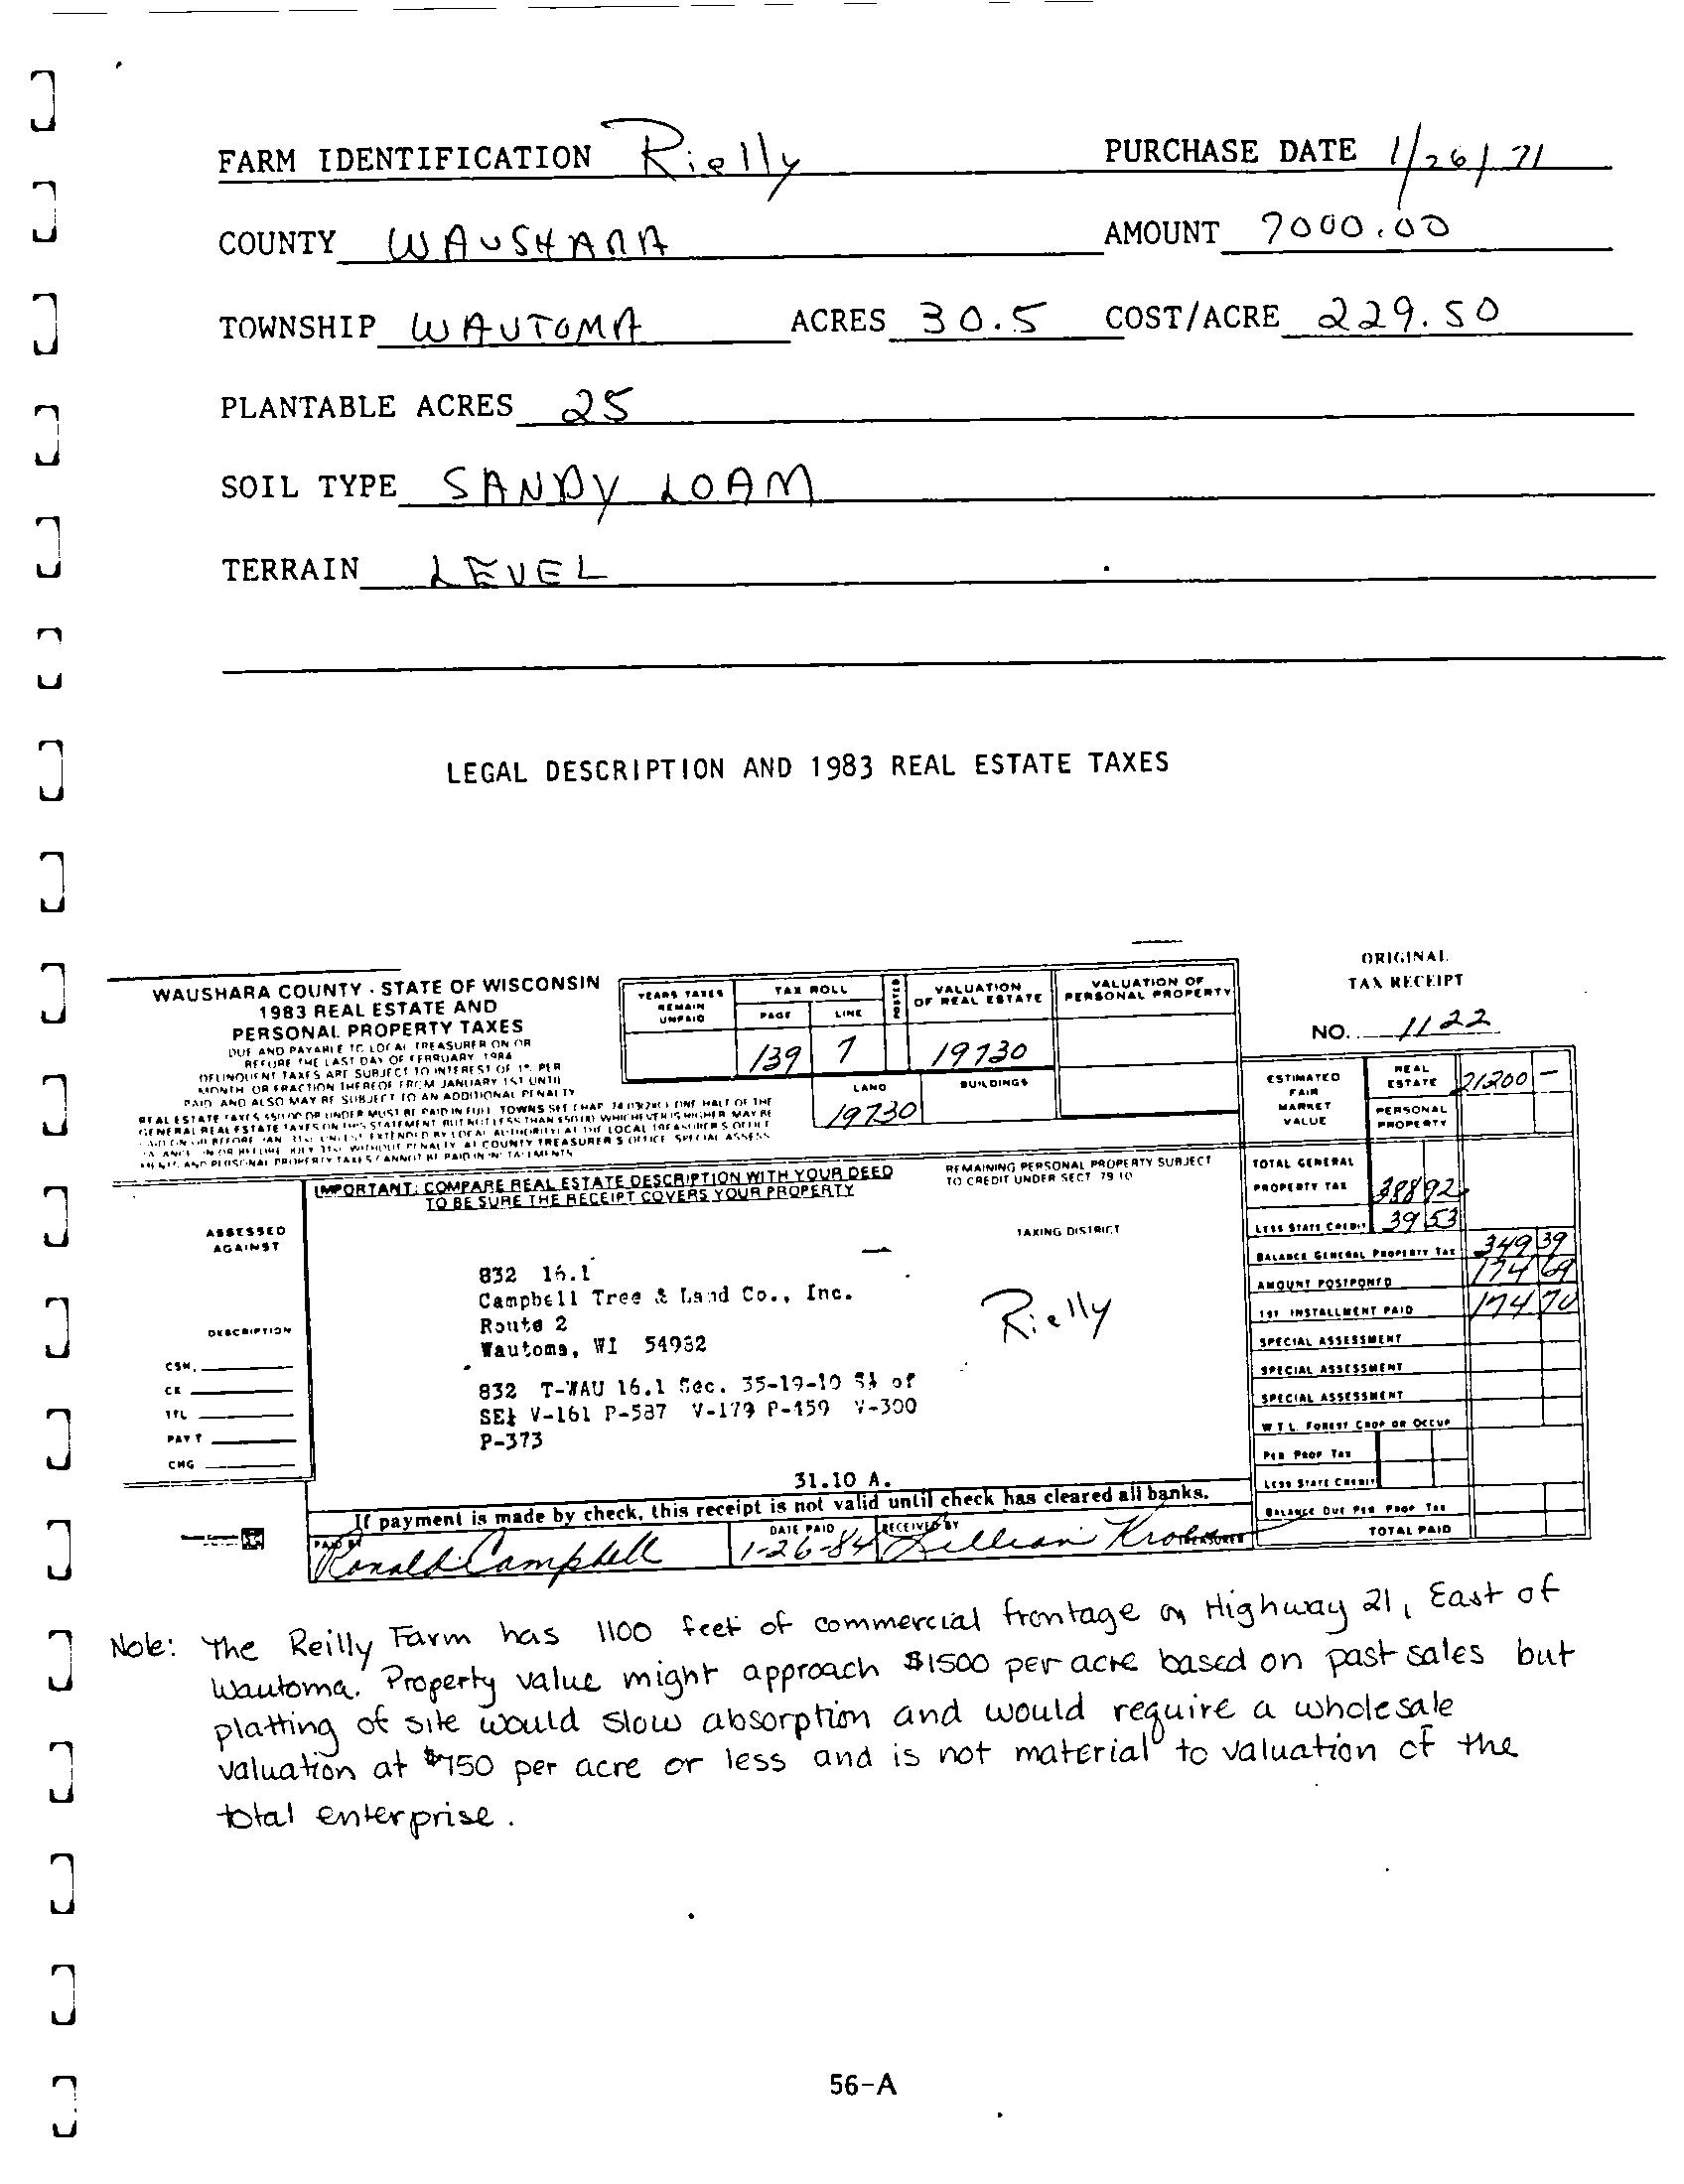 FARM IDENTIFICATION Rielly PURCHASE DATE 1/26/71
COUNTY WAUSHARA AMOUNT 7000.00
TOWNSHIP WAUTOMA ACRES 30.5 COST/ACRE 229.50
PLANTABLE ACRES 25
SOIL TYPE SANDY LOAM
TERRAIN LEVEL
LEGAL DESCRIPTION AND 1983 REAL ESTATE TAXES
ORIGINAL
TAX RECEIPT
NO. 1122
WAUSHARA COUNTY - STATE OF WISCONSIN
1983 REAL ESTATE AND
PERSONAL PROPERTY TAXES
DUE AND PAYABLE TO LOCAL TREASURER ON OR
BEFORE THE LAST DAY OF FEBRUARY 1984
DELINQUENT TAXES ARE SUBJECT TO INTEREST OF 1% PER
MONTH OR FRACTION THEREOF FROM JANUARY 1ST UNTIL
PAID AND ALSO MAY BE SUBJECT TO AN ADDITIONAL PENALTY
YEARS TAXES REMAIN UNPAID
TAX ROLL
PAGE LINE
POSTED
VALUATION OF REAL ESTATE
VALUATION OF PERSONAL PROPERTY
139 7 19730
LAND BUILDINGS
19730
ESTIMATED FAIR MARKET VALUE
REAL ESTATE 21200 -
PERSONAL PROPERTY
IMPORTANT: COMPARE REAL ESTATE DESCRIPTION WITH YOUR DEED
TO BE SURE THE RECEIPT COVERS YOUR PROPERTY
REMAINING PERSONAL PROPERTY SUBJECT
TO CREDIT UNDER SECT 79.10
TAXING DISTRICT
ASSESSED
AGAINST
832 16.1
Campbell Tree & Land Co., Inc.
Route 2
Wautoma, WI 54982
Rielly
DESCRIPTION
832 T-WAU 16.1 Sec. 35-19-10 S½ of
SE¼ V-161 P-587 V-179 P-459 V-300
P-373
31.10 A.
CSM.
CK
TTL
PAY'T
CHG
TOTAL GENERAL
PROPERTY TAX 388 92
LESS STATE CREDIT 39 53
BALANCE GENERAL PROPERTY TAX 349 39
AMOUNT POSTPONED 174 69
1ST INSTALLMENT PAID 174 70
SPECIAL ASSESSMENT
SPECIAL ASSESSMENT
SPECIAL ASSESSMENT
W.T.L. FOREST CROP OR OCCUP
PER PROP TAX
LESS STATE CREDIT
BALANCE DUE PER PROP TAX
TOTAL PAID
If payment is made by check, this receipt is not valid until check has cleared all banks.
PAID BY Ronald Campbell DATE PAID 1-26-84 RECEIVED BY Lillian TREASURER
Note: The Reilly Farm has 1100 feet of commercial frontage on Highway 21, East of
Wautoma. Property value might approach $1500 per acre based on past sales but
platting of site would slow absorption and would require a wholesale
valuation at $750 per acre or less and is not material to valuation of the
total enterprise.
56-A